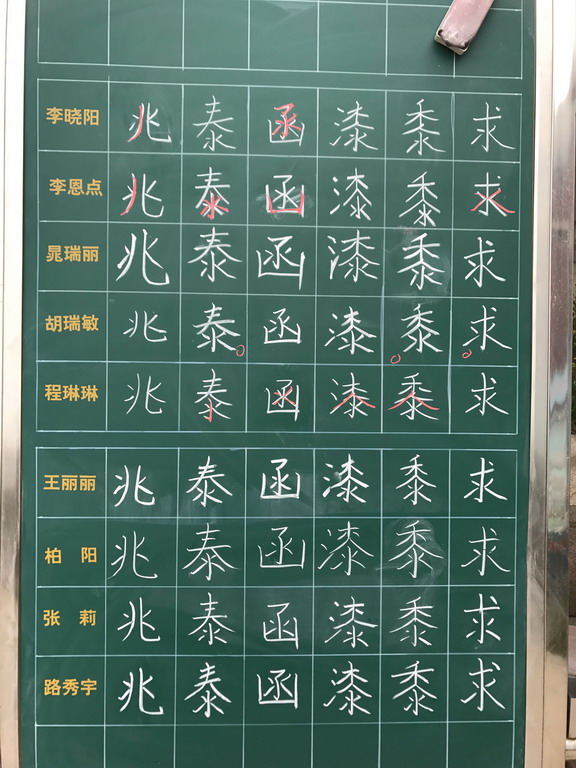 李晓阳 兆 泰 函 漆 黍 求
李恩点 兆 泰 函 漆 黍 求
晁瑞丽 兆 泰 函 漆 黍 求
胡瑞敏 兆 泰 函 漆 黍 求
程琳琳 兆 泰 函 漆 黍 求
王丽丽 兆 泰 函 漆 黍 求
柏 阳 兆 泰 函 漆 黍 求
张 莉 兆 泰 函 漆 黍 求
路秀宇 兆 泰 函 漆 黍 求